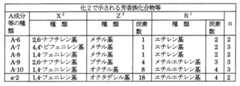 化2で示される芳香族化合物等
A成分等の種類 X¹ Z¹ R¹ n
種類 種類 炭素数 種類 炭素数
A-6 2,6-ナフチレン基 メチル基 1 エチレン基 2 2
A-7 4,4'-ビフェニレン基 メチル基 1 エチレン基 2
A-8 1,4-フェニレン基 メチル基 1 エチレン基 2
A-9 2,6-ナフチレン基 メチル基 メチルエチレン基 3
A-10 1,4-フェニレン基 オクチル基 8 メチルエチレン基 3
a-2 1,4-フェニレン基 オクタデシル基 18 エチルエチレン基 4 2